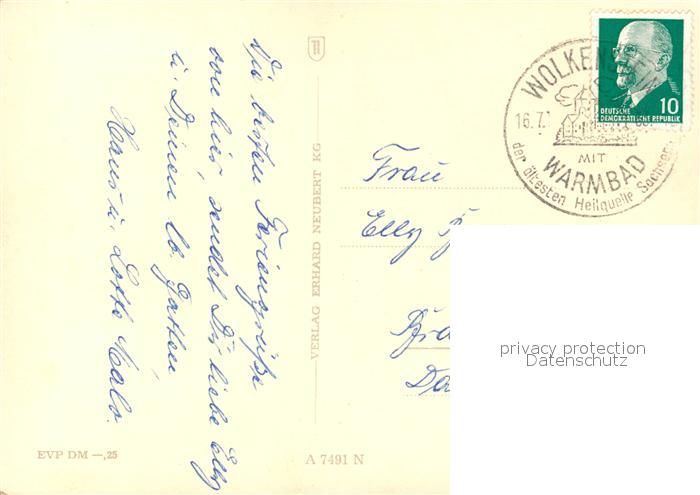 Die besten Feriengrüße
von hier, sendet Dir liebe Elly
u. Deinen lb. Gatten
Hans u. Lotte
EVP DM —,25
VERLAG ERHARD NEUBERT KG
A 7491 N
WOLKENSTEIN
16.7.
MIT
WARMBAD
der ältesten Heilquelle Sachsens
10
DEUTSCHE
DEMOKRATISCHE REPUBLIK
Frau
Elly
privacy protection
Datenschutz